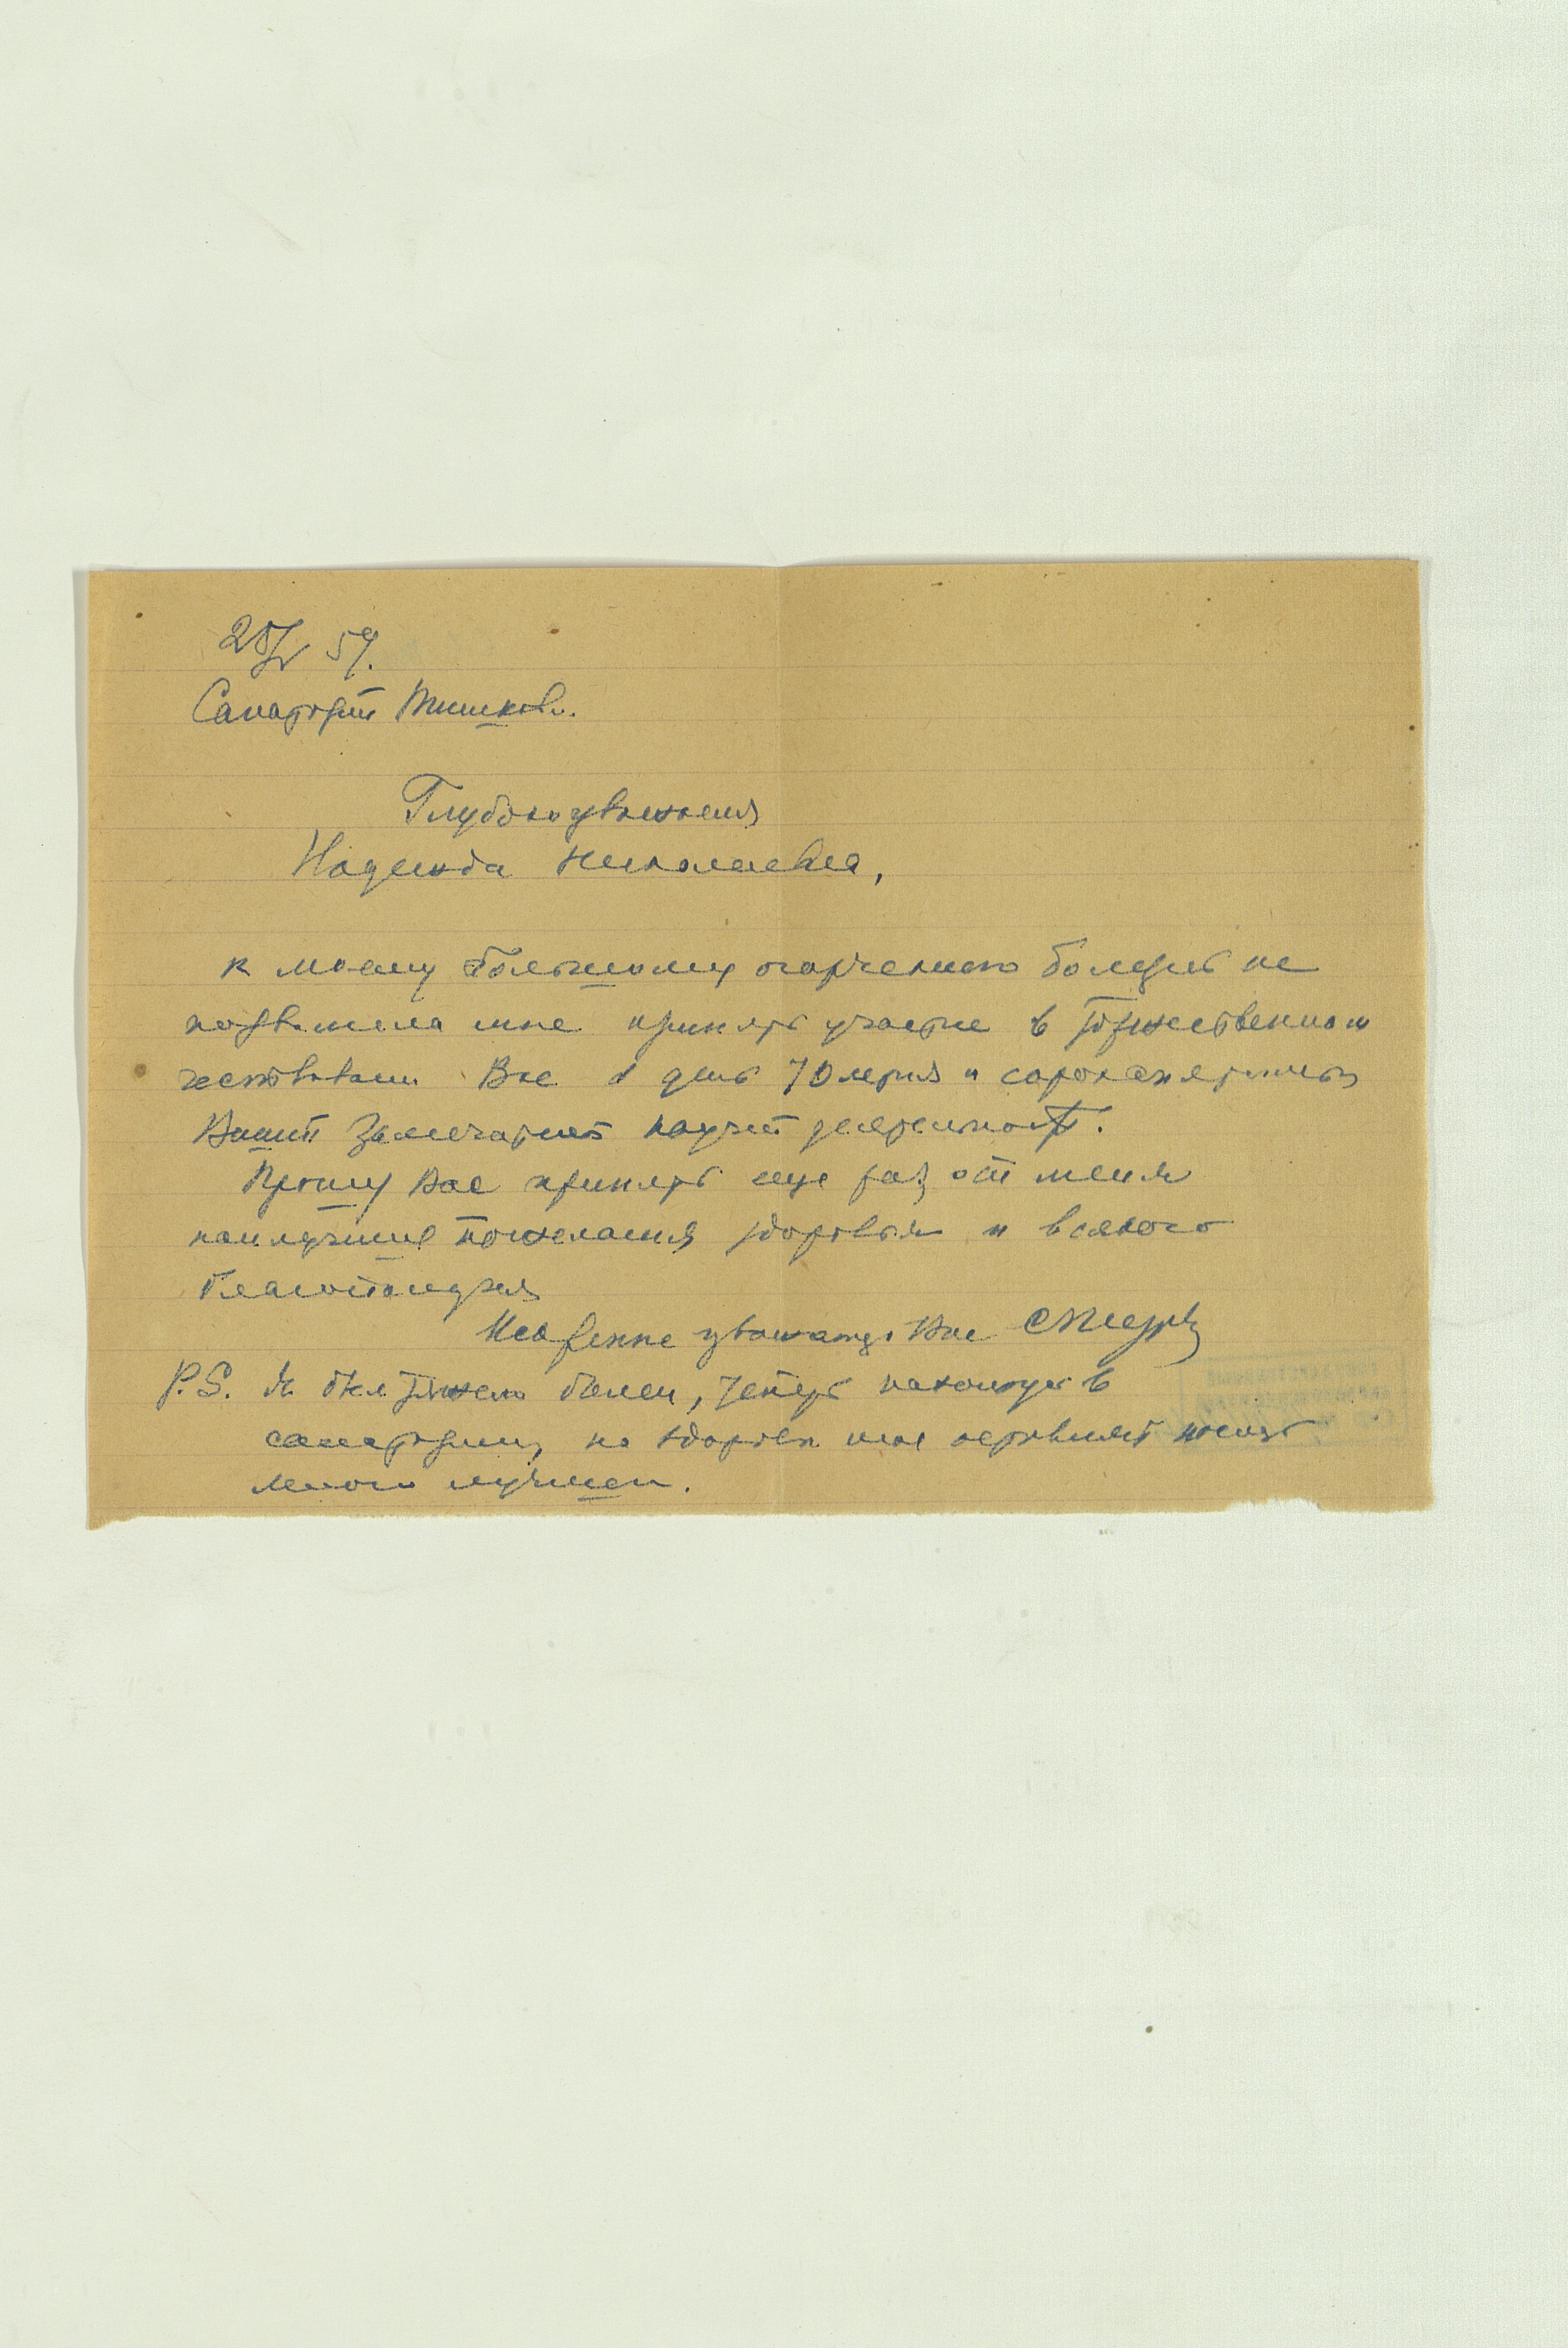 28/V 59.
Санаторий Тишково.
Глубокоуважаемая
Надежда Николаевна,
к моему большому огорчению болезнь не
позволила мне принять участие в торжественном
чествовании Вас в день 70 летия и сорокапятилетия
Вашей замечательной научной деятельности.
Прошу Вас принять еще раз от меня
наилучшие пожелания здоровья и всякого
благополучия
Искренне уважающий Вас
P.S. Я был тяжело болен, теперь нахожусь в
санатории, но здоровье мое оставляет желать
много лучшего.